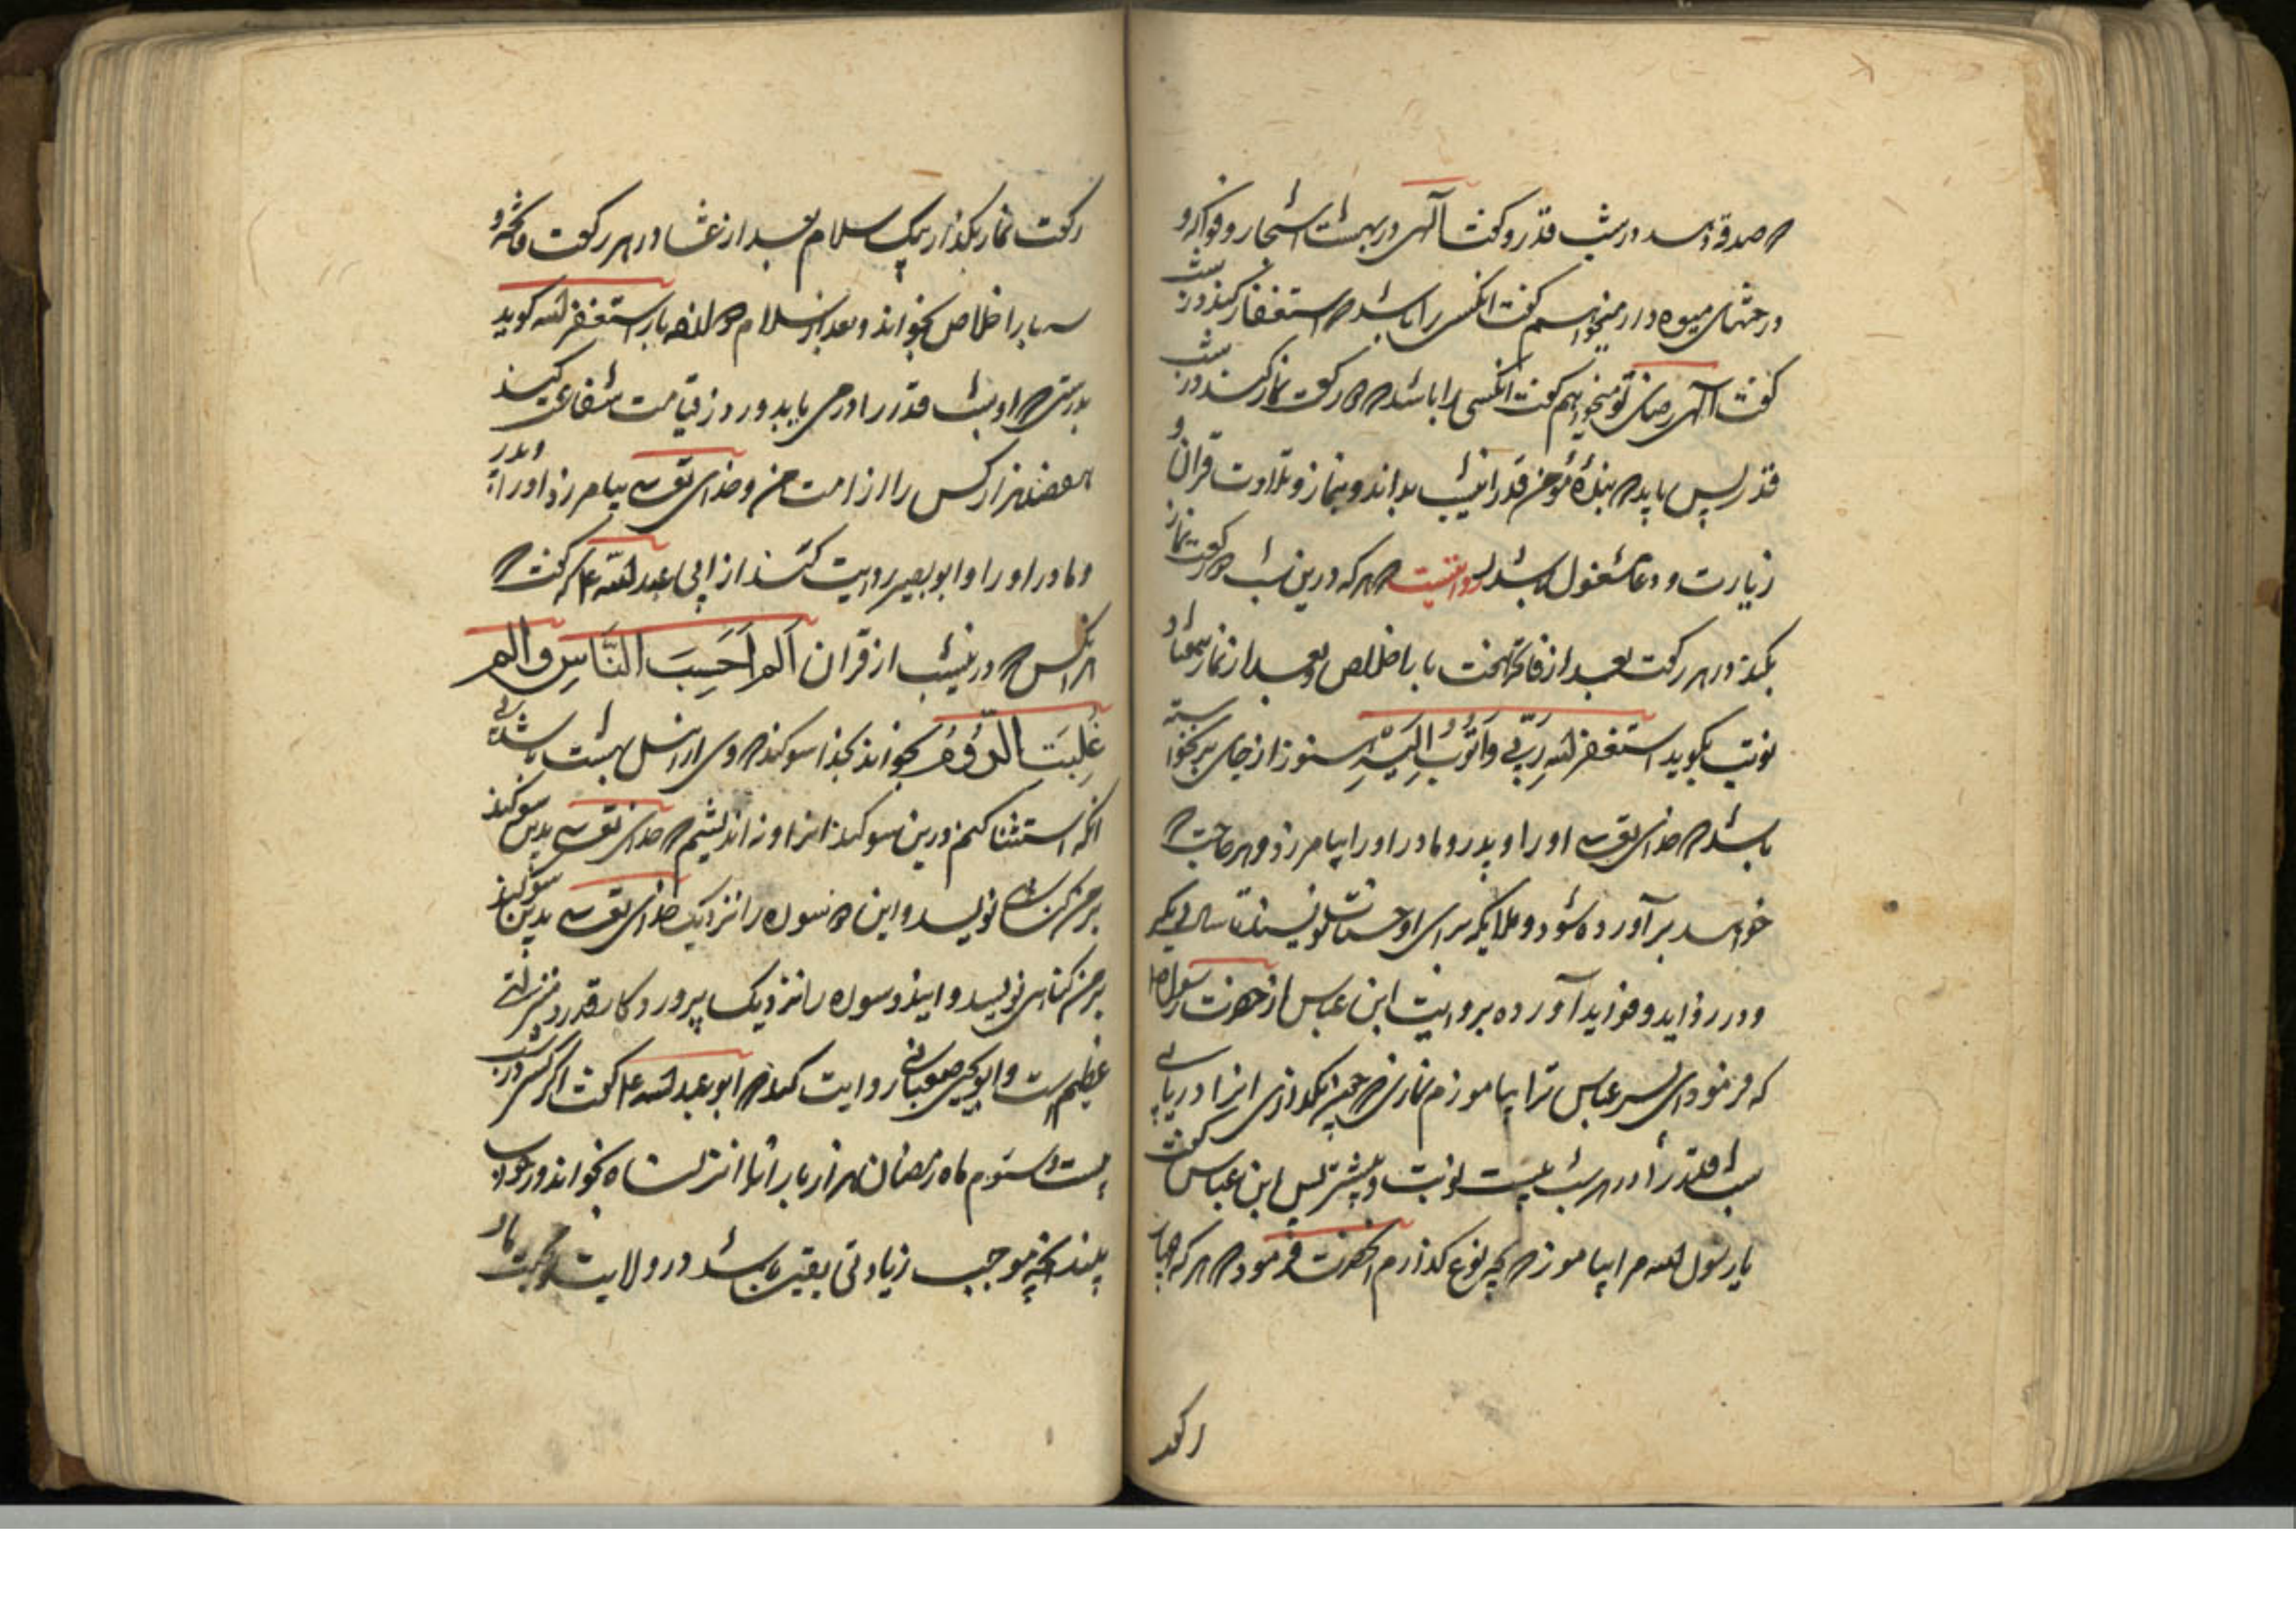 که صدقه دهد در شب قدر و گفت آلهی در بهشت اشجار و فواکه و
درختهای میوه دار میخواهم گفت انکس را باشد که استغفار کند در شب
گفت آلهی رضای تو میخواهم گفت انکسی را باشد که دو رکعت نماز کند در شب
قدر پس باید که بندهٔ مؤمن قدر این شب بداند و بنماز و تلاوت قران و
زیارت و دعا مشغول باشد روایتست که هر که درین شب دو رکعت نماز
بکند در هر رکعت بعد از فاتحه هفت بار اخلاص و بعد از نماز هفتاد
نوبت بکوید استغفر الله رَبّی وَاَتُوبُ اِلَیْهِ هنوز از جای برنخواسته
باشد که خدای تعالی او را و پدر و مادر او را بیامرزد و هر حاجت که
خواهد برآورده شود و ملایکه برای او حسنات نویسند تا سال دیکر
و در زواید و فواید آورده بروایت ابن عباس از حضرت رسول
که فرمود ای پسر عباس ترا بیاموزم نمازی که چون بکذاری انرا دریابی
شب قدر را در هر شب بیست نوبت و بیشتر پس ابن عباس گفت
یا رسول الله مرا بیاموز که بچه نوع کذارم انحضرت فرمود که هر که چهار
رکعت
رکعت نماز بکذارد بیک سلام بعد از عشا در هر رکعت فاتحه و
سه بار اخلاص بخواند و بعد از سلام بار استغفر الله کوید
بدرستی که او شب قدر را درمی یابد و روز قیامت شفاعت کند
هفصد هزار کس را از امت من و خدای تعالی بیامرزد او را و پدر
و مادر او را و ابو بصیر روایت کند از ابی عبد الله ع که گفت که
هر انکس که در این شب از قران الم اَحَسِبَ النَّاس و الم
غُلِبَتِ الرُّومُ بخواند بخدا سوکند که وی از اهل بهشت باشد بی
انکه استثنا کنم درین سوکند انرا و نه اندیشم که خدای تعالی بدین سوکند
بر من کناهی نویسد و این دو سوره را نزدیک خدای تعالی بدین سوکند
بر من کناهی نویسد و ایندو سوره را نزدیک پروردکار قدر و منزلتی
عظیم است و ابو یحیی صنعانی روایت کند که ابو عبد الله ع گفت اکر کسی در شب
بیست و سوم ماه رمضان هزار بار انا انزلناه بخواند در خواب
بیند انچه موجب زیادتی یقین باشد در ولایت و محبت ما و